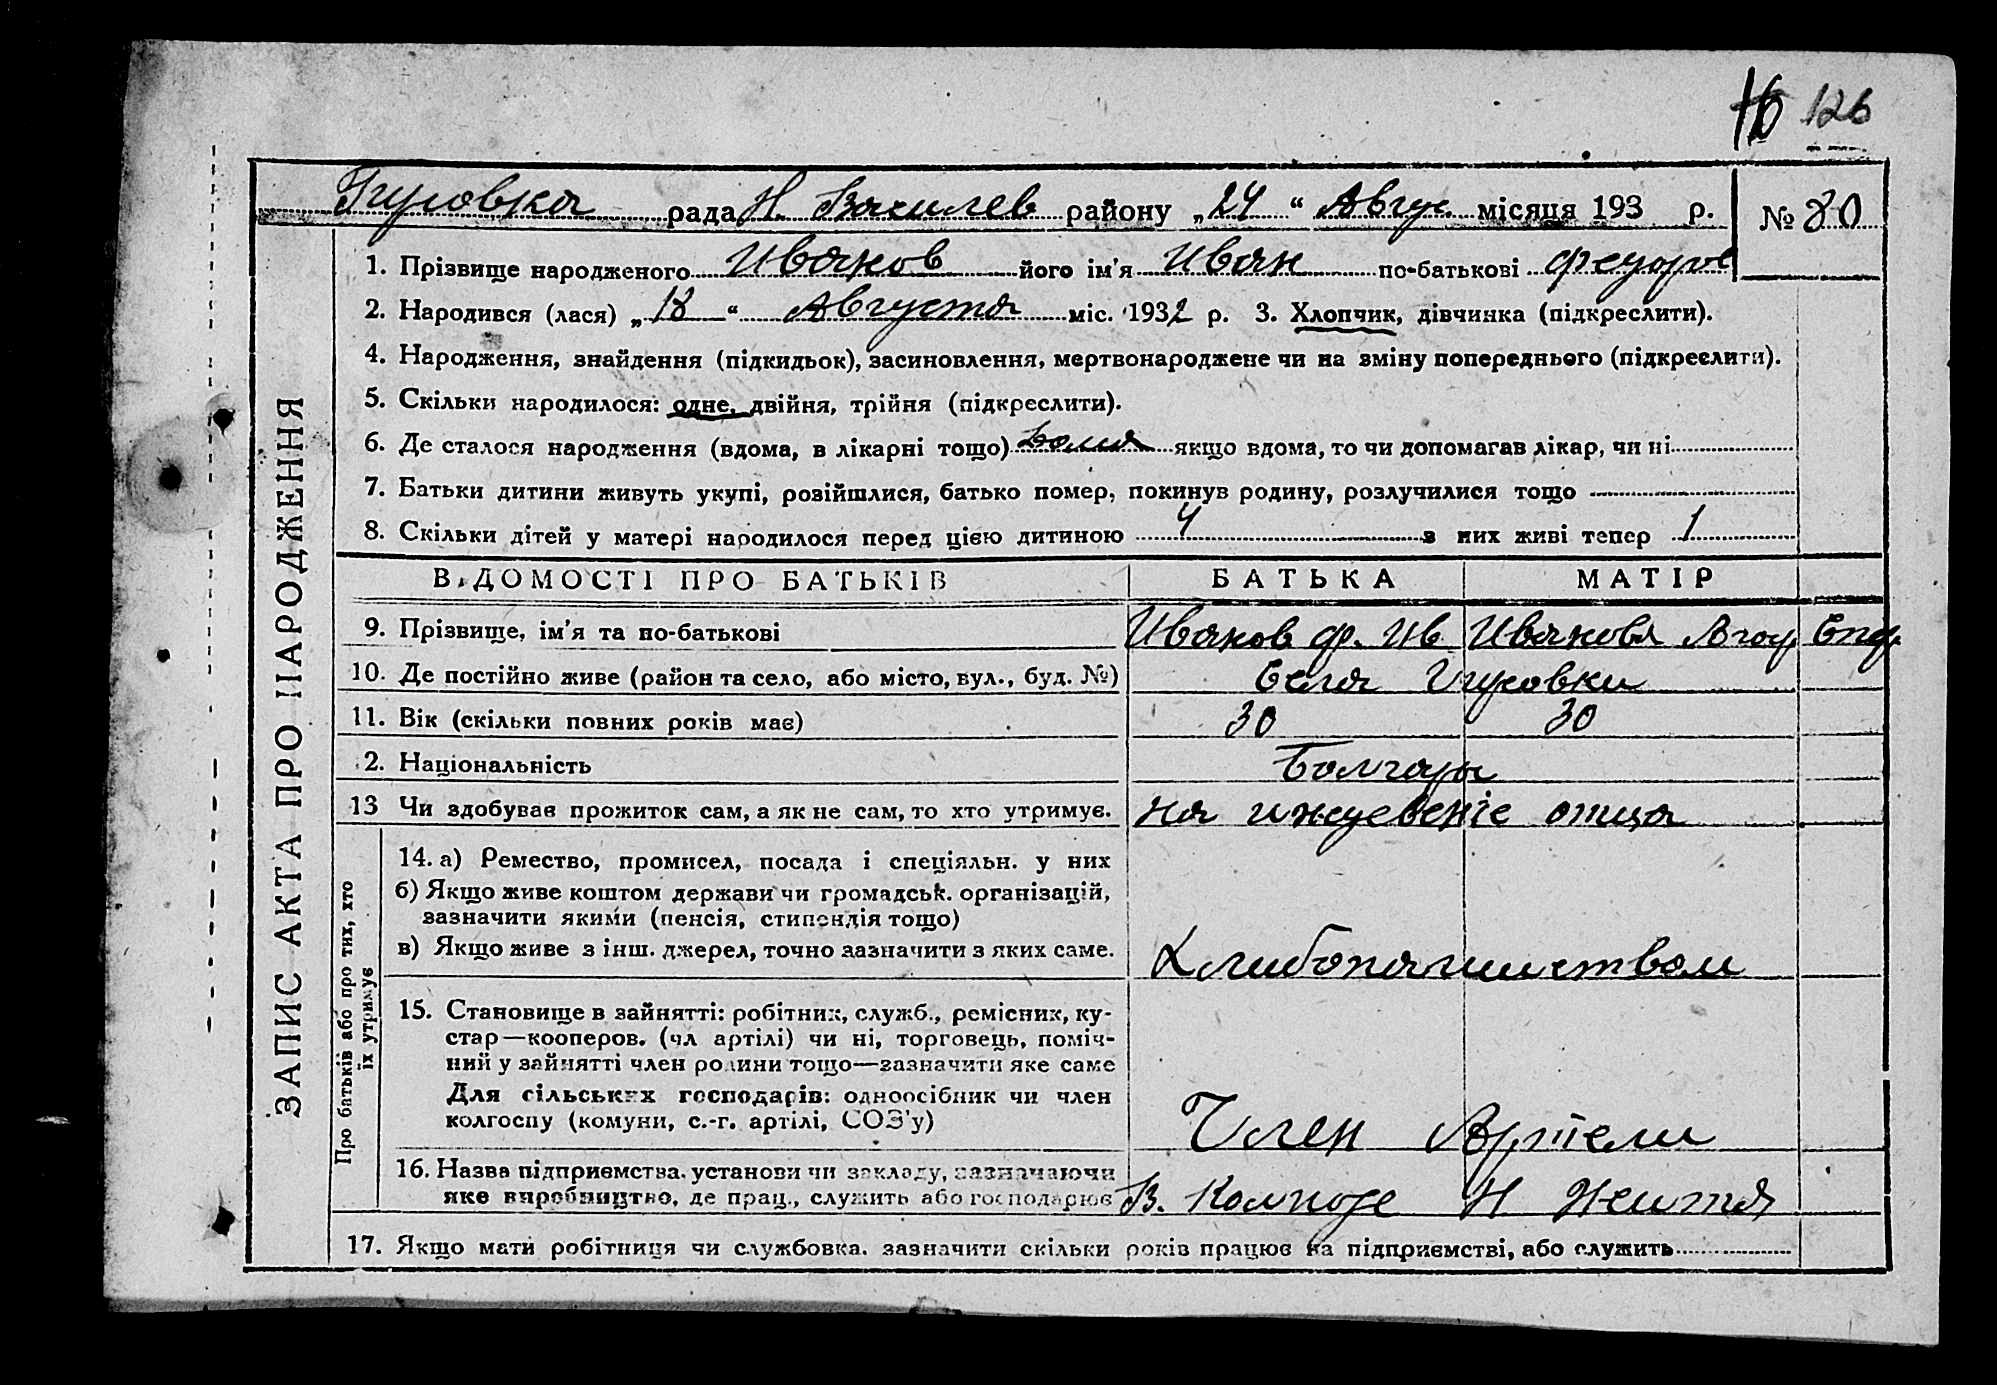 126
Гировка рада Н. Василев району „24“ Август. місяця 193 р. № 80
1. Прізвище народженого Иванов його ім'я Иван по-батькові Федоров
2. Народився (лася) „18“ Августа міс. 1932 р. 3. Хлопчик, дівчинка (підкреслити).
4. Народження, знайдення (підкидьок), засиновлення, мертвонароджене чи на зміну попереднього (підкреслити).
5. Скільки народилося: одне, двійня, трійня (підкреслити).
6. Де сталося народження (вдома, в лікарні тощо) Дома якщо вдома, то чи допомагав лікар, чи ні
7. Батьки дитини живуть укупі, розійшлися, батько помер, покинув родину, розлучилися тощо
8. Скільки дітей у матері народилося перед цією дитиною 4 з них живі тепер 1
ЗАПИС АКТА ПРО НАРОДЖЕННЯ
ВІДОМОСТІ ПРО БАТЬКІВ БАТЬКА МАТІР
9. Прізвище, ім'я та по-батькові Иванов Ф. Ив Иванова
10. Де постійно живе (район та село, або місто, вул., буд. №) Села Гировки
11. Вік (скільки повних років має) 30 30
2. Національність Болгары
13 Чи здобував прожиток сам, а як не сам, то хто утримує. на иждевеніе отца
Про батьків або про тих, хто
їх утримує
14. а) Ремество, промисел, посада і спеціяльн. у них
б) Якщо живе коштом держави чи громадськ. організацій,
зазначити якими (пенсія, стипендія тощо)
в) Якщо живе з інш. джерел, точно зазначити з яких саме. Хлибопашиством
15. Становище в зайнятті: робітник, служб., ремісник, ку-
стар—кооперов. (чл артілі) чи ні, торговець, поміч-
ний у зайнятті член родини тощо—зазначити яке саме
Для сільських господарів: одноосібник чи член
колгоспу (комуни, с.-г. артілі, СОЗ'у) Член Артели
16. Назва підприємства, установи чи закладу, зазначаючи
яке виробництво, де прац., служить або господарює В. Колхозе Н
17. Якщо мати робітниця чи службовка, зазначити скільки років працює на підприємстві, або служить